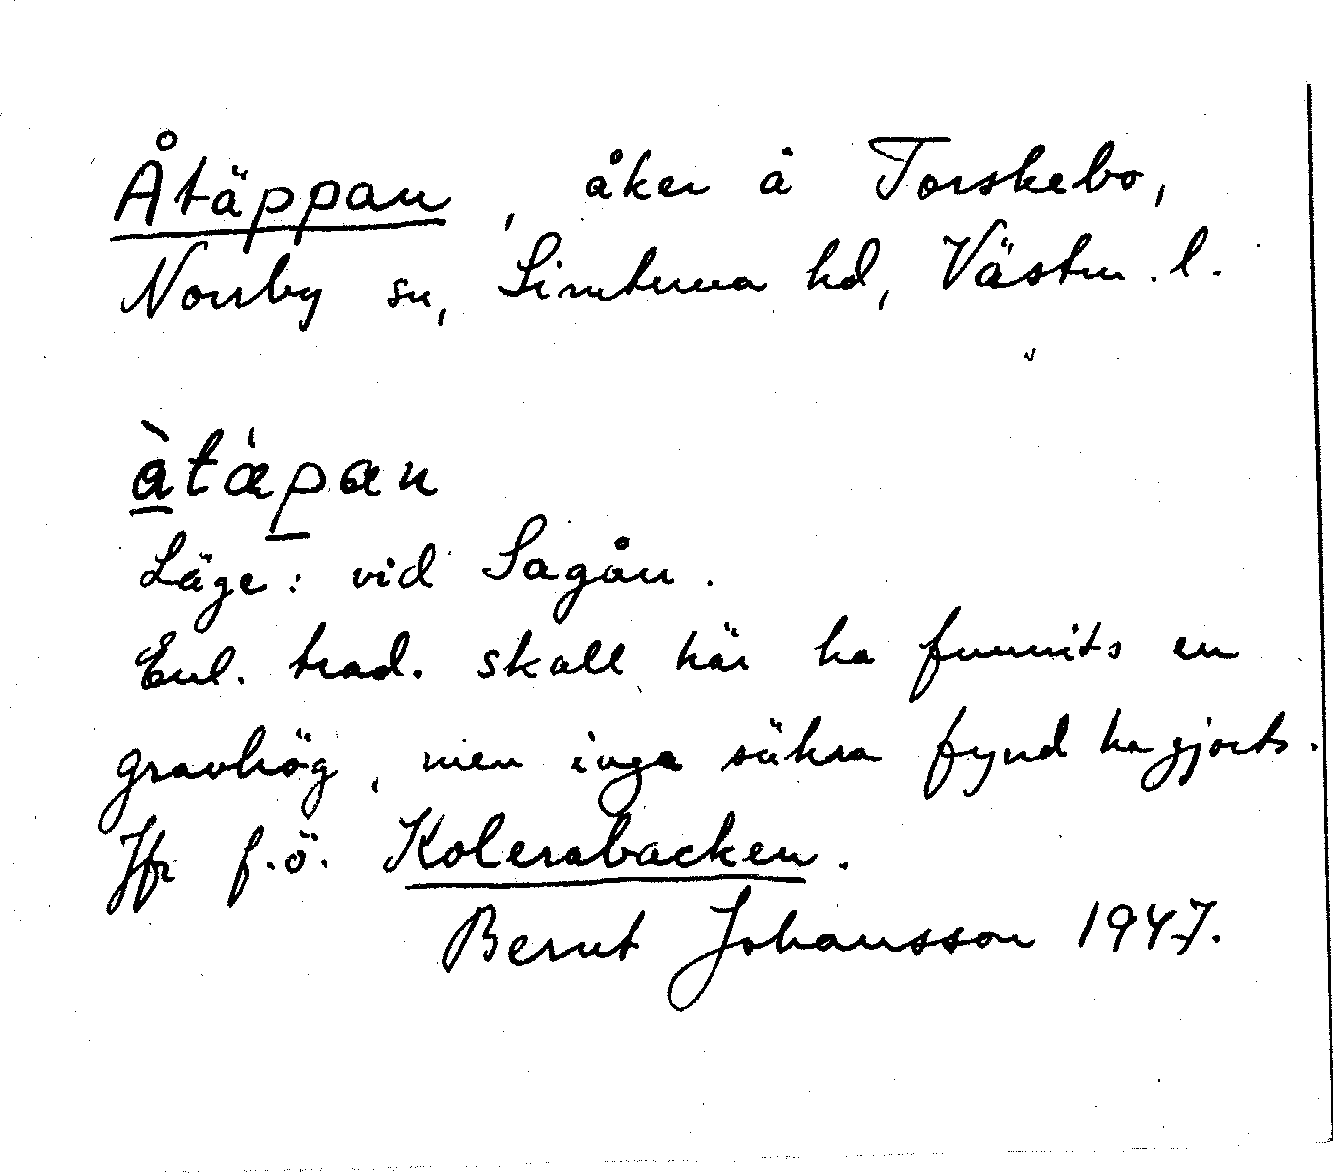 Åtäppan, åker å Torskebo,
Norrby sn, Simtuna hd, Västm. l.
å̱̀tä́p̱an
Läge: vid Sagån.
Enl. trad. skall här ha funnits en
gravhög, men inga säkra fynd ha gjorts.
Jfr f.ö. Kolerabacken.
Bernt Johansson 1947.